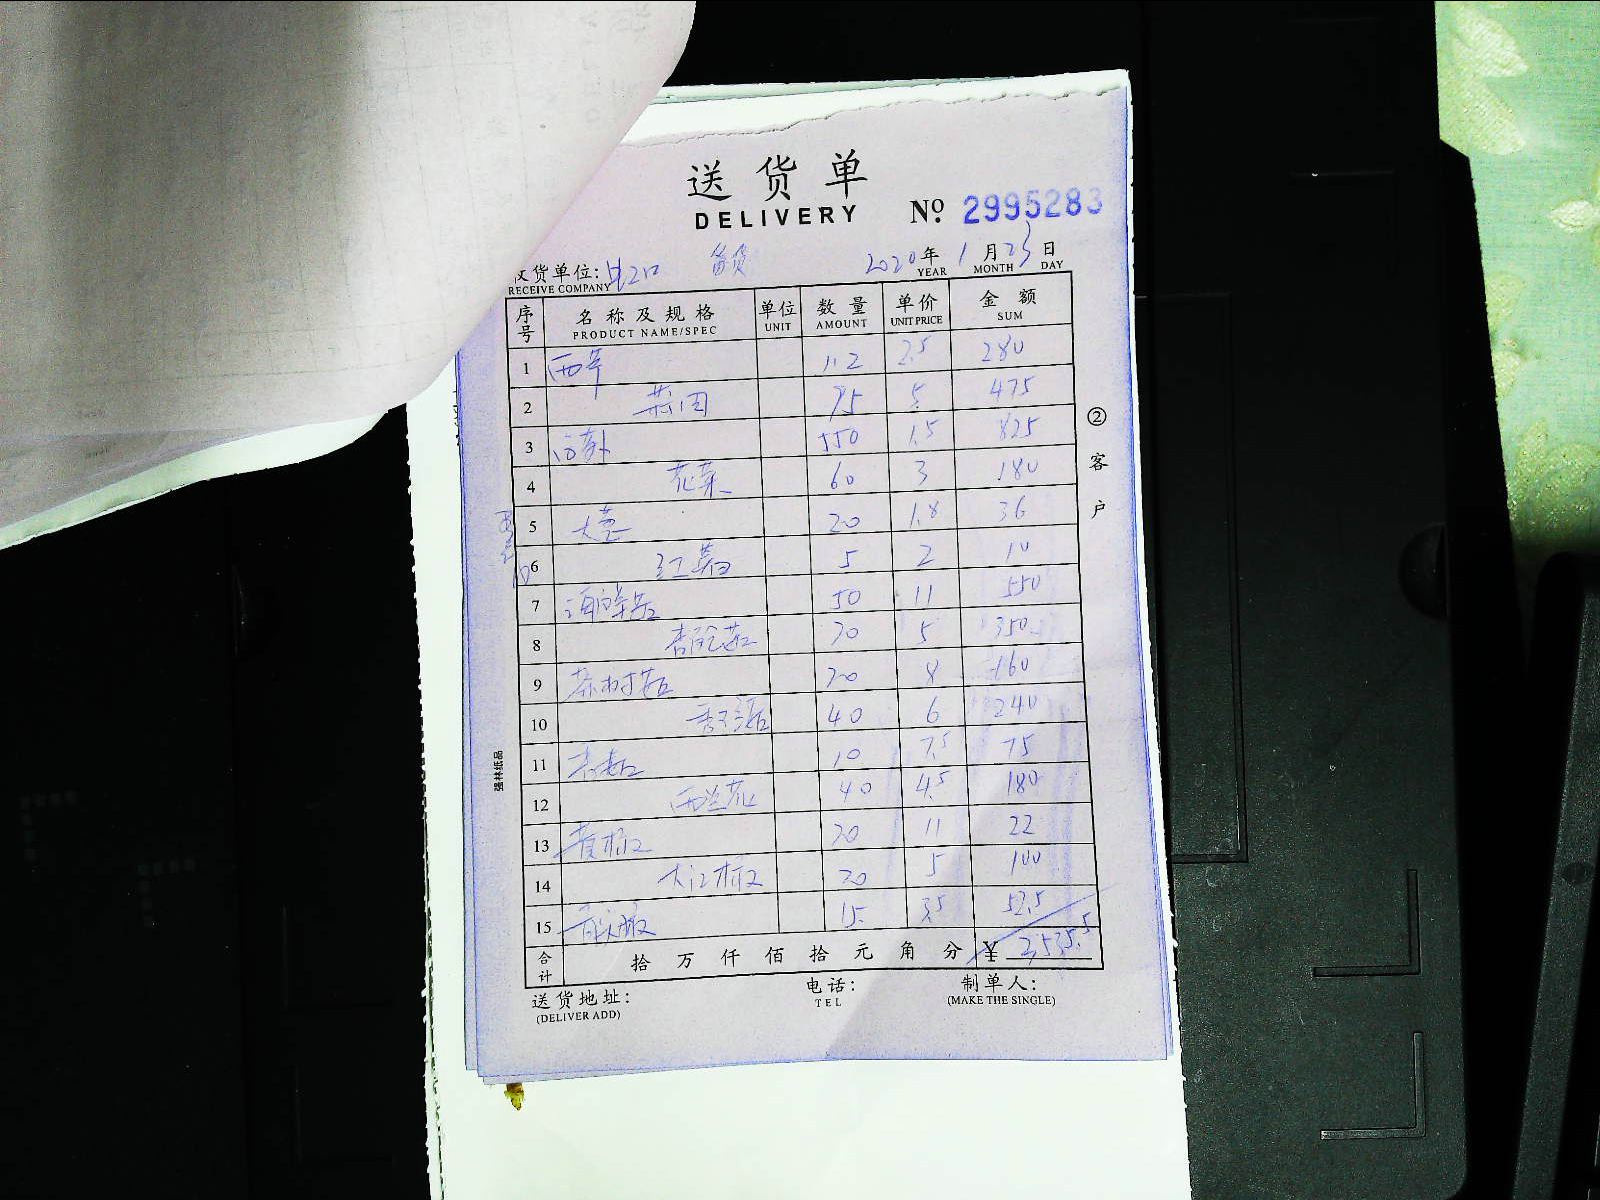 送货单
DELIVERY № 2995283
货单位: 2020年1月23日
RECEIVE COMPANY YEAR MONTH DAY
序号 名称及规格 单位 数量 单价 金额
PRODUCT NAME/SPEC UNIT AMOUNT UNIT PRICE SUM
1 西芹 112 2.5 280
2 95 5 475
3 550 1.5 825
4 花菜 60 3 180
5 大葱 20 1.8 36
6 红薯 5 2 10
7 海鲜菇 50 11 550
8 杏鲍菇 70 5 350
9 茶树菇 20 8 160
10 秀珍菇 40 6 240
11 香菇 10 7.5 75
12 西兰花 40 4.5 180
13 青椒 20 11 22
14 大红椒 20 5 100
15 15 3.5 52.5
合计 拾万仟佰拾元角分 ¥ 3,535.5
送货地址: 电话: 制单人:
(DELIVER ADD) TEL (MAKE THE SINGLE)
②客户
强林纸品